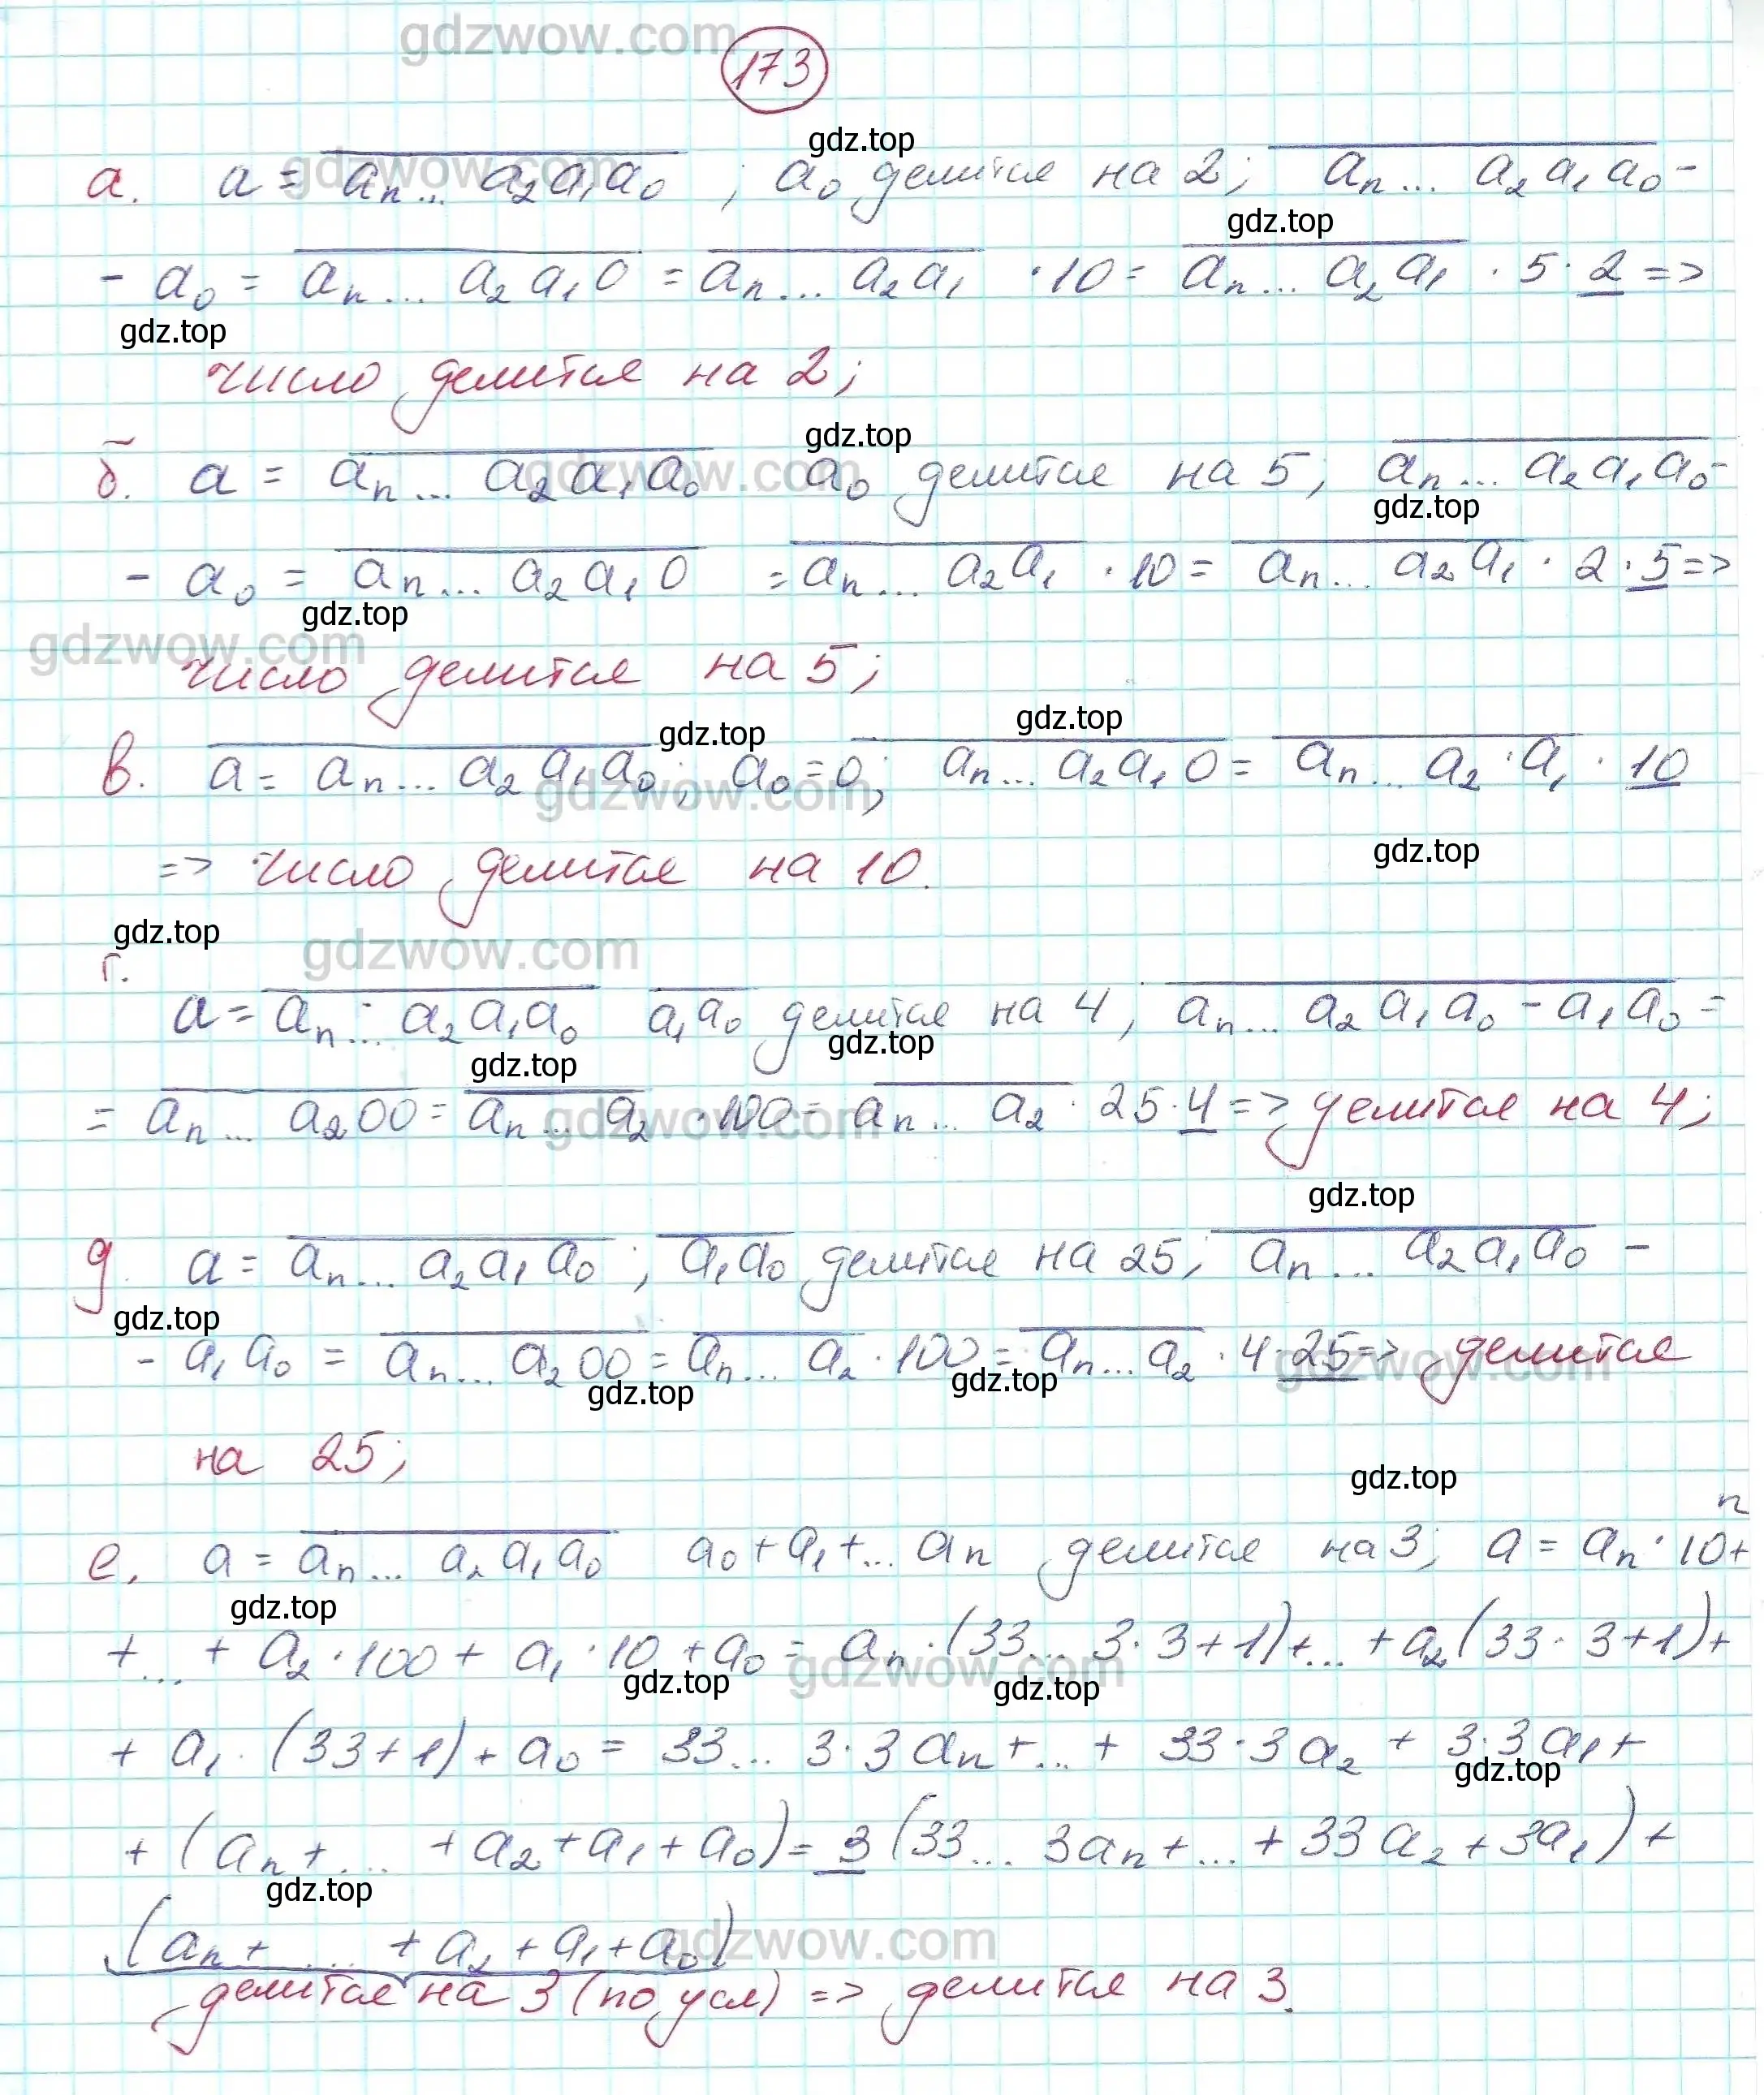 gdzwow.com
173
gdz.top
а. a = aₙ... a₂a₁a₀ ; a₀ делится на 2; aₙ... a₂a₁a₀ -
gdzwow.com
gdz.top
- a₀ = aₙ... a₂a₁0 = aₙ... a₂a₁ · 10 = aₙ... a₂a₁ · 5 · 2 =>
gdz.top
число делится на 2;
gdz.top
б. a = aₙ... a₂a₁a₀ a₀ делится на 5; aₙ... a₂a₁a₀ -
gdzwow.com
gdz.top
- a₀ = aₙ... a₂a₁0 = aₙ... a₂a₁ · 10 = aₙ... a₂a₁ · 2 · 5 =>
gdz.top
gdzwow.com
число делится на 5;
gdz.top gdz.top
в. a = aₙ... a₂a₁a₀; a₀ = 0; aₙ... a₂a₁0 = aₙ... a₂ · a₁ · 10
gdzwow.com
gdz.top
=> число делится на 10.
gdz.top
gdzwow.com
г.
a = aₙ... a₂a₁a₀ a₁a₀ делится на 4; aₙ... a₂a₁a₀ - a₁a₀ =
gdz.top gdz.top
= aₙ... a₂00 = aₙ... a₂ · 100 = aₙ... a₂ · 25 · 4 => делится на 4;
gdzwow.com
gdz.top
д. a = aₙ... a₂a₁a₀ ; a₁a₀ делится на 25; aₙ... a₂a₁a₀ -
gdz.top
- a₁a₀ = aₙ... a₂00 = aₙ... a₂ · 100 = aₙ... a₂ · 4 · 25 => делится
gdzwow.com
gdz.top gdz.top
на 25;
gdz.top
е. a = aₙ... a₂a₁a₀ a₀ + a₁ + ... aₙ делится на 3; a = aₙ · 10ⁿ +
gdz.top
+ ... + a₂ · 100 + a₁ · 10 + a₀ = aₙ · (33... 3 · 3 + 1) + ... + a₂(33 · 3 + 1) +
gdzwow.com
gdz.top gdz.top
+ a₁ · (33 + 1) + a₀ = 33... 3 · 3aₙ + ... + 33 · 3a₂ + 3 · 3a₁ +
gdz.top
+ (aₙ + ... + a₂ + a₁ + a₀) = 3(33... 3aₙ + ... + 33a₂ + 3a₁) +
gdz.top
(aₙ + ... + a₂ + a₁ + a₀)
gdzwow.com
делится на 3 (по усл) => делится на 3.